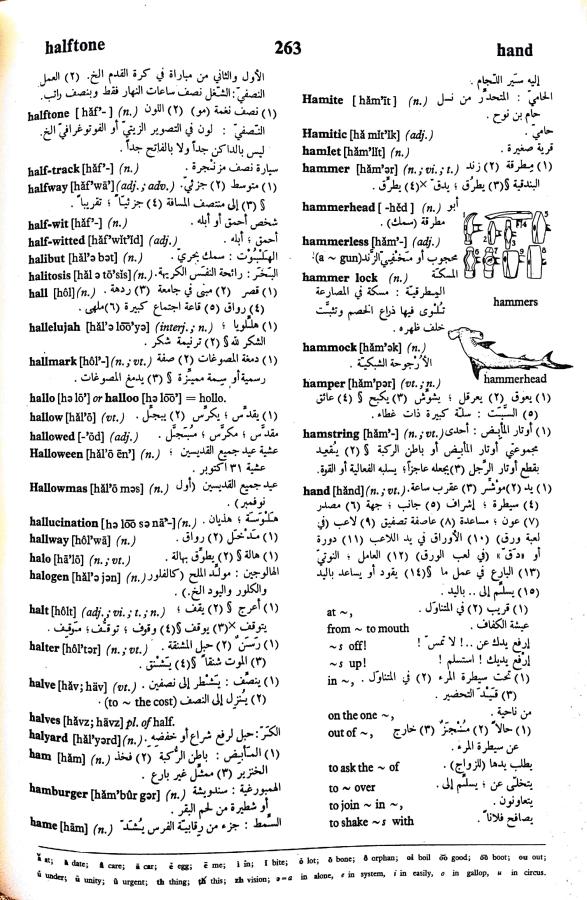 halftone 263 hand
الأول والثاني من مباراة في كرة القدم الخ. (٢) العمل
النصفيّ: الشغل نصف ساعات النهار فقط وبنصف راتب.
halftone [hăf'-] (n.) (١) نصف نغمة (مو) (٢) اللون
النصفيّ: لون في التصوير الزيتيّ أو الفوتوغرافيّ الخ.
ليس بالداكن جداً ولا بالفاتح جداً.
half-track [hăf'-] (n.) سيارة نصف مزنجرة.
halfway [hăf'wā'] (adj.; adv.) (١) متوسط (٢) جزئيّ.
§ (٣) إلى منتصف المسافة (٤) جزئياً؛ تقريباً.
half-wit [hăf'-] (n.) شخص أحمق أو أبله.
half-witted [hăf'wĭt'ĭd] (adj.) أحمق؛ أبله.
halibut [hăl'ə bət] (n.) الهلبوت: سمك بحريّ.
halitosis [hăl ə tō'sĭs] (n.) البَخَر: رائحة النفَس الكريهة.
hall [hôl] (n.) (١) قصر (٢) مبنى في جامعة (٣) ردهة.
(٤) رواق (٥) قاعة اجتماع كبيرة (٦) ملهى.
hallelujah [hăl'ə lōō'yə] (interj.; n.) (١) هللويا؛
الشكر لله § (٢) ترنيمة شكر.
hallmark [hôl'-] (n.; vt.) (١) دمغة المصوغات (٢) صفة
رسمية أو سمة مميزة § (٣) يدمغ المصوغات.
hallo [hə lō'] or halloo [hə lōō'] = hollo.
hallow [hăl'ō] (vt.) (١) يقدّس؛ يكرّس (٢) يبجّل.
hallowed [-'ōd] (adj.) مقدّس؛ مكرّس؛ مبجّل.
Halloween [hăl'ō ēn'] (n.) عشية عيد جميع القديسين؛
عشية ٣١ اكتوبر.
Hallowmas [hăl'ō məs] (n.) عيد جميع القديسين (أول
نوفمبر).
hallucination [hə lōō sə nā'-] (n.) هَلْوَسة؛ هذيان.
hallway [hôl'wā] (n.) (١) مَدْخل (٢) رواق.
halo [hā'lō] (n.; vt.) (١) هالة § (٢) يطوّق بهالة.
halogen [hăl'ə jən] (n.) الهالوجين: مولّد الملح (كالفلور
والكلور واليود الخ.).
halt [hôlt] (adj.; vi.; t.; n.) (١) أعرج § (٢) يقف؛
يتوقف ×(٣) يوقف § (٤) وقوف؛ توقّف؛ موقف.
halter [hôl'tər] (n.; vt.) (١) رَسَن (٢) حبل المشنقة.
(٣) الموت شنقاً § (٤) يشنق.
halve [hăv; häv] (vt.) (١) ينصّف: يشطر إلى نصفين.
(٢) يُنزل إلى النصف (to ~ the cost).
halves [hăvz; hävz] pl. of half.
halyard [hăl'yərd] (n.) الكَرّ: حبل لرفع شراع أو خفضه.
ham [hăm] (n.) (١) المأبِض: باطن الركبة (٢) فخذ
الخنزير (٣) ممثّل غير بارع.
hamburger [hăm'bûr gər] (n.) الهمبورغية: سندويشة
أو شطيرة من لحم البقر.
hame [hām] (n.) السَّمْط: جزء من رقابيّة الفرس يُشدّ
إليه سير اللجام.
Hamite [hăm'īt] (n.) الحاميّ: المتحدّر من نسل
حام بن نوح.
Hamitic [hă mĭt'ĭk] (adj.) حاميّ.
hamlet [hăm'lĭt] (n.) قرية صغيرة.
hammer [hăm'ər] (n.; vi.; t.) (١) مِطرقة (٢) زند
البندقية § (٣) يطرُق؛ يدقّ ×(٤) يطرّق.
hammerhead [-hĕd] (n.) أبو
مطرقة (سمك).
hammerless [hăm'-] (adj.)
محجوب أو متخفّي الزند (a ~ gun).
hammer lock (n.) المسكة
المطرقيّة: مسكة في المصارعة
تُلوى فيها ذراع الخصم وتثبّت
خلف ظهره.
hammers
hammock [hăm'ək] (n.)
الأرجوحة الشبكيّة.
hammerhead
hamper [hăm'pər] (vt.; n.)
(١) يعوق (٢) يعرقل؛ يشوّش (٣) يكبح § (٤) عائق
(٥) السَّبَت: سلّة كبيرة ذات غطاء.
hamstring [hăm'-] (n.; vt.) (١) أوتار المأبض: أحدى
مجموعتي أوتار المأبض أو باطن الركبة § (٢) يُقعِد
بقطع أوتار الرِّجل (٣) يجعله عاجزاً؛ يسلبه الفعالية أو القوة.
hand [hănd] (n.; vt.) (١) يد (٢) مؤشّر (٣) عقرب ساعة.
(٤) سيطرة؛ إشراف (٥) جانب؛ جهة (٦) مصدر
(٧) عون؛ مساعدة (٨) عاصفة تصفيق (٩) لاعب (في
لعبة ورق) (١٠) الأوراق في يد اللاعب (١١) دورة
أو «دقّ» (في لعب الورق) (١٢) العامل؛ النوتيّ
(١٣) البارع في عمل ما § (١٤) يقود أو يساعد باليد
(١٥) يسلّم إلى.. باليد.
at ~, (١) قريب (٢) في المتناول.
from ~ to mouth عيشة الكفاف.
~s off! إرفع يدك عن..! لا تمسّ!
~s up! إرفع يديك! استسلم!
in ~, (١) تحت سيطرة المرء (٢) في المتناول.
(٣) قيد التحضير.
on the one ~, من ناحية.
out of ~, (١) حالاً (٢) مُنْجَز (٣) خارج
عن سيطرة المرء.
to ask the ~ of يطلب يدها (للزواج).
to ~ over يتخلّى عن؛ يسلّم إلى.
to join ~ in ~, يتعاونون.
to shake ~s with يصافح فلاناً.
ă at; ā date; â care; ä car; ĕ egg; ē me; ĭ in; ī bite; ŏ lot; ō bone; ô orphan; oi boil ŏŏ good; ōō boot; ou out;
ŭ under; ū unity; û urgent; th thing; ŧħ this; zh vision; ə = a in alone, e in system, i in easily, o in gallop, u in circus.